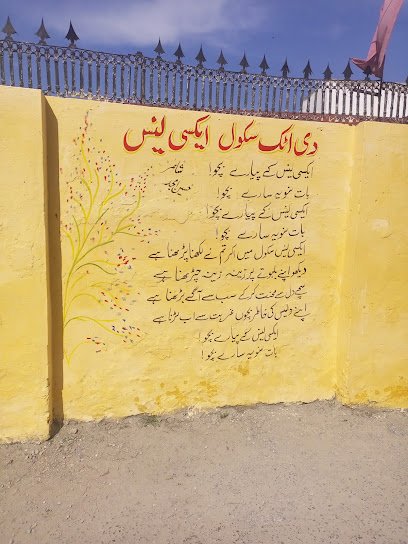 دی اٹک سکول ایکسی لینس
ایکسی لینس کے پیارے بچو!
بات سنو یہ سارے بچو!
ایکسی لینس کے پیارے بچو!
بات سنو یہ سارے بچو!
ایکسی لینس سکول میں اکر تم نے لکھنا پڑھنا ہے
دیکھو اپنے بلبوتے پر زینہ زینہ چڑھنا ہے
سچے دل سے محنت کر کے سب سے آگے بڑھنا ہے
اپنے دیس کی خاطر بچوں غربت سے اب لڑنا ہے
ایکسی لینس کے پیارے بچو!
بات سنو یہ سارے بچو!